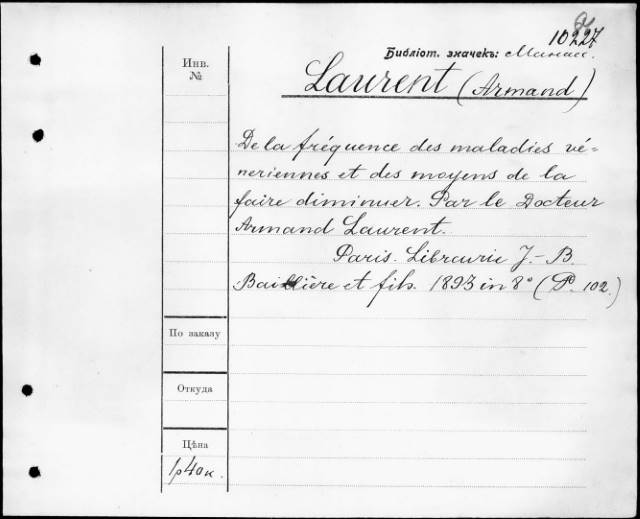 10227
Библіот. значекъ: Манас.
Инв.
№
Laurent (Armand)
De la fréquence des maladies vé=
neriennes et des moyens de la
faire diminuer. Par le Docteur
Armand Laurent.
Paris. Librairie J.-B.
Baillière et fils. 1893 in 8° (P. 102.)
По заказу
Откуда
Цѣна
1р40к.